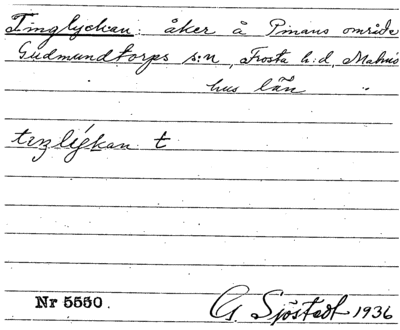 Tinglyckan: åker å Pinans område
Gudmundtorps s:n, Frosta h:d, Malmö
hus län
tɪŋlýkan t
Nr 5550.
G. Sjöstedt 1936